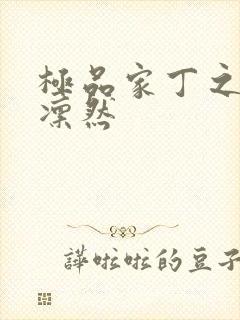 極品家丁之
凜然
譁啦啦的豆子